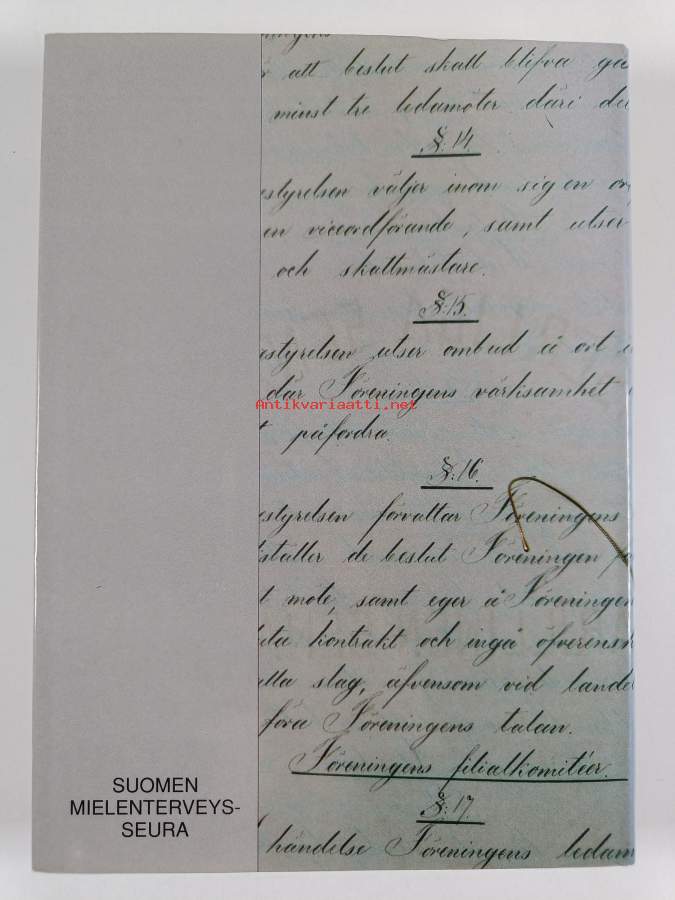 ningens
att beslut skall blifva gä
minst tre ledamöter däri de
§:14.
estyrelsen väljer inom sig en or
en viceordförande, samt utser
och skattmästare.
§:15.
estyrelsen utser ombud å ort
där Föreningens värksamhet
Antikvariaatti.net
t påfordra.
§:16.
estyrelsen förvaltar Föreningens
ställer de beslut Föreningen på
t möte, samt eger å Föreningen
luta kontrakt och ingå öfverensk
alla slag, äfvensom vid landet
föra Föreningens talan.
Föreningens filialkomitéer.
§:17.
händelse Föreningens ledam
SUOMEN
MIELENTERVEYS-
SEURA